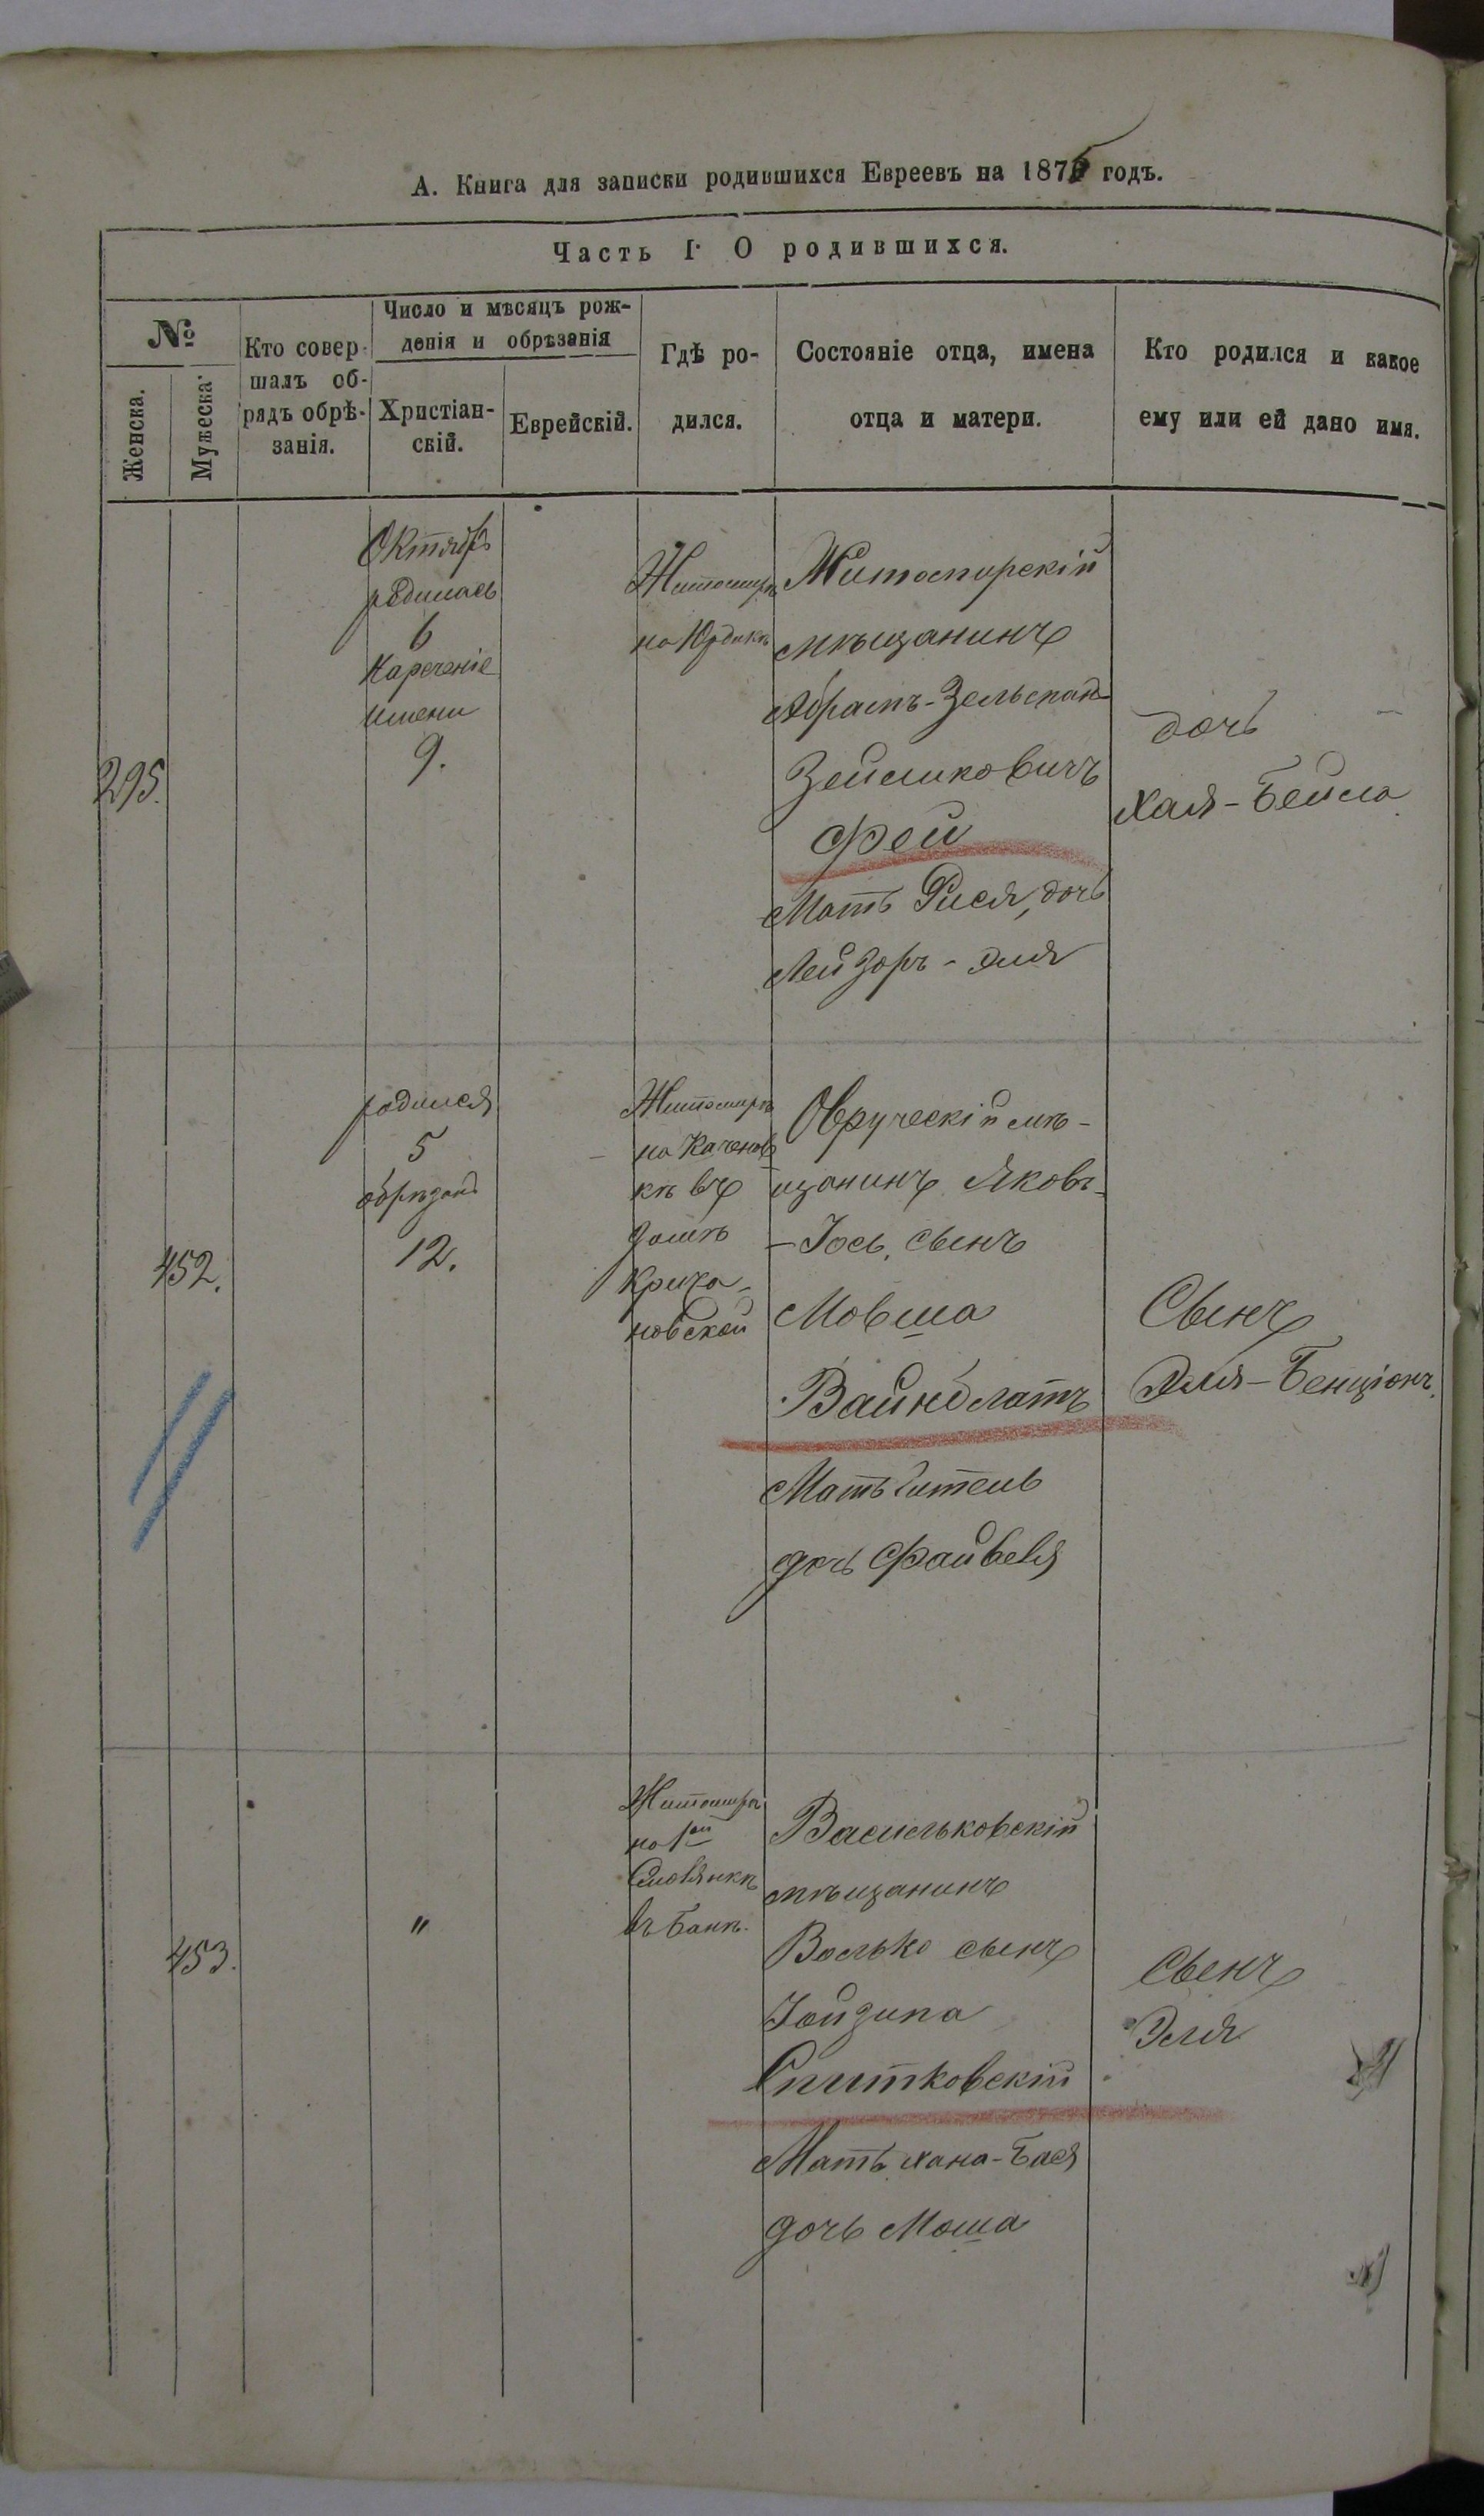 А. Книга для записки родившихся Евреевъ на 1875 годъ.
Часть I. О родившихся.
№
Женска.
Мужеска.
Кто совер-
шалъ об-
рядъ обрѣ-
занія.
Число и мѣсяцъ рож-
денія и обрѣзанія
Христіан-
скій.
Еврейскій.
Гдѣ ро-
дился.
Состояніе отца, имена
отца и матери.
Кто родился и какое
ему или ей дано имя.
295.
Октябрь
родилась
6
Нареченіе
имени
9.
Житомиръ
на
Житомирскій
мѣщанинъ
Абрамъ-Зельман
Зейликовичъ
Фей
Мать Рися, дочь
Лейзоръ-Эля
дочь
Хая-Бейла
452.
родился
5
обрѣзанъ
12.
Житомиръ
на Каченов
кѣ въ
домѣ
Крижа-
новской
Овручевскій мѣ-
щанинъ Яковъ-
-Іось, сынъ
Мовша
Вайнблатъ
Мать Гитель
дочь Файвеля
Сынъ
Эля-Бенціонъ.
453.
"
Житомиръ
на 1ой
Смолянкѣ
въ Банѣ.
Васильковскій
мѣщанинъ
Волько сынъ
Іойзипа
Спитковскій
Мать Хана-Бася
дочь Моша
Сынъ
Эля